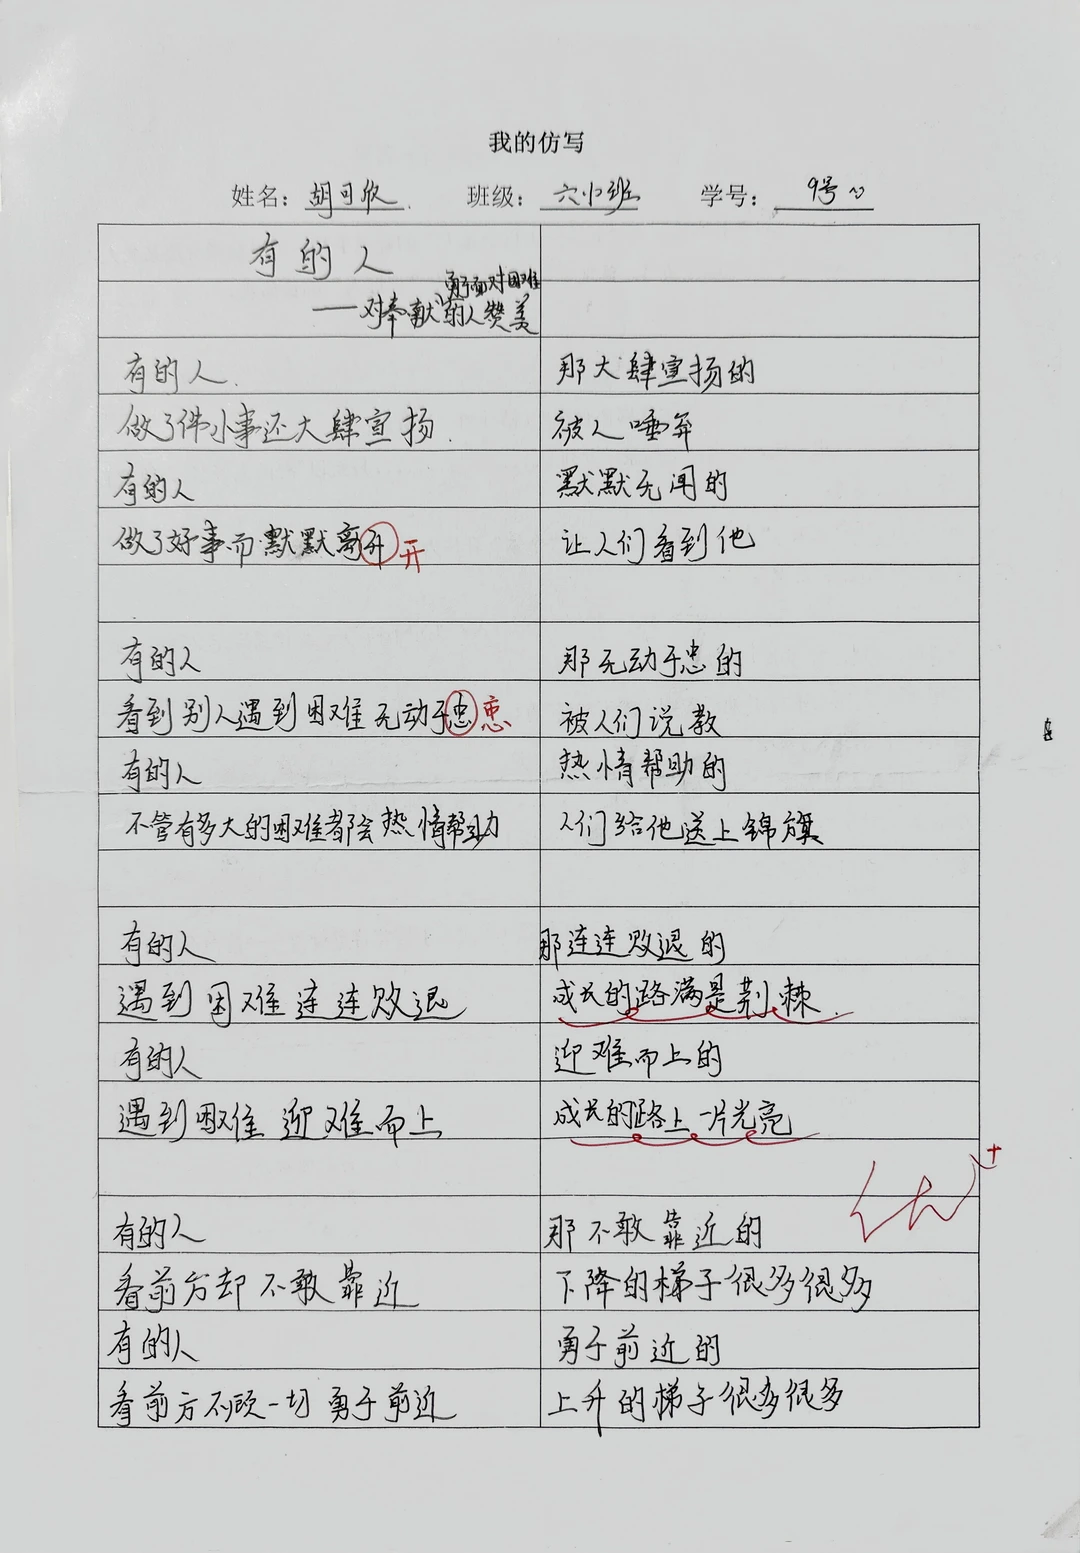 我的仿写
姓名：胡可欣 班级：六小班 学号：9号
有的人
勇于面对困难
——对奉献的人赞美
有的人
做了件小事还大肆宣扬
有的人
做了好事而默默离升 开
有的人
看到别人遇到困难无动于忠 衷
有的人
不管有多大的困难都会热情帮助
有的人
遇到困难连连败退
有的人
遇到困难迎难而上
有的人
看前方却不敢靠近
有的人
看前方不顾一切勇于前近
那大肆宣扬的
被人唾弃
默默无闻的
让人们看到他
那无动于忠的
被人们说教
热情帮助的
人们给他送上锦旗
那连连败退的
成长的路满是荆棘
迎难而上的
成长的路上一片光亮
优+
那不敢靠近的
下降的梯子很多很多
勇于前近的
上升的梯子很多很多